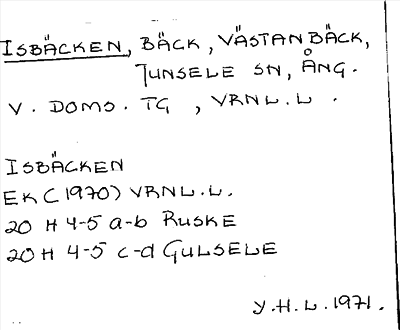 ISBÄCKEN, BÄCK, VÄSTANBÄCK,
JUNSELE SN, ÅNG.
V. DOMS. TG, VRNL.L.
ISBÄCKEN
EK (1970) VRNL.L.
20 H 4-5 a-b RUSKE
20 H 4-5 c-d GULSELE
Y.H.L. 1971.